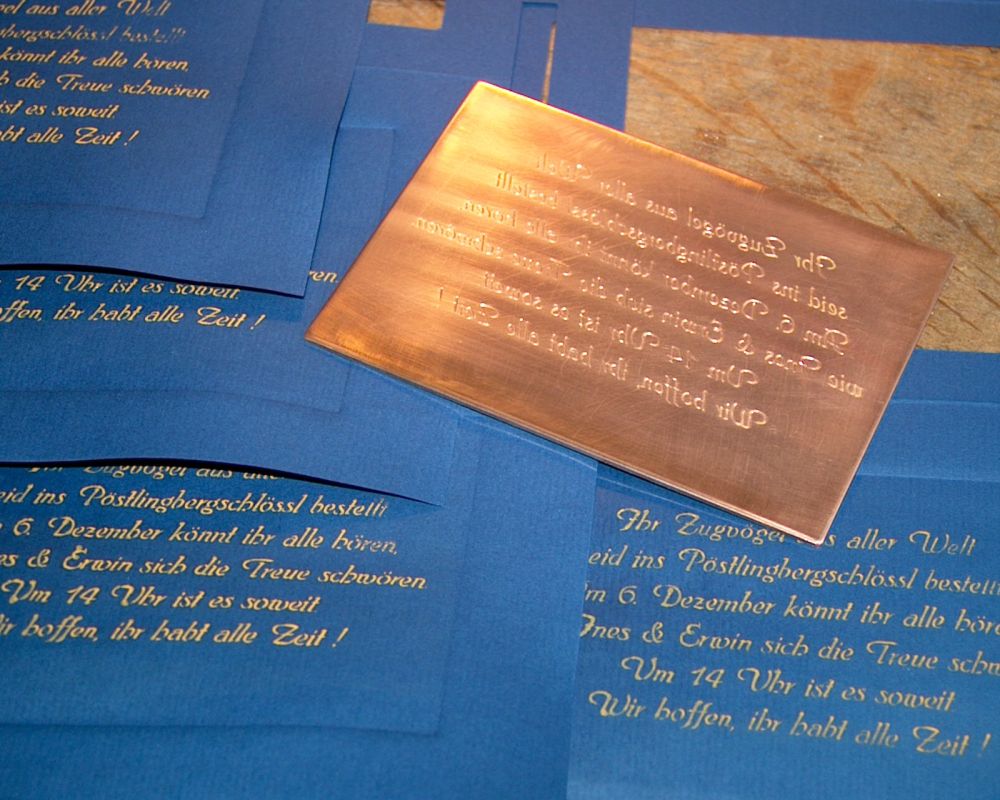 el aus aller Welt
gbergschlössl bestellt
könnt ihr alle hören,
h die Treue schwören
ist es soweit
abt alle Zeit !
ren.
14 Uhr ist es soweit.
offen, ihr habt alle Zeit !
Ihr Zugvögel aus aller
eid ins Pöstlingbergschlössl bestellt
6. Dezember könnt ihr alle hören,
es & Erwin sich die Treue schwören
Um 14 Uhr ist es soweit
ir hoffen, ihr habt alle Zeit !
Ihr Zugvögel aus aller Welt
seid ins Pöstlingbergschlössl bestellt
Am 6. Dezember könnt ihr alle hören,
wie Ines & Erwin sich die Treue schwören
Um 14 Uhr ist es soweit
Wir hoffen, ihr habt alle Zeit !
Ihr Zugvögel aus aller Welt
eid ins Pöstlingbergschlössl bestellt
m 6. Dezember könnt ihr alle höre
Ines & Erwin sich die Treue schw
Um 14 Uhr ist es soweit
Wir hoffen, ihr habt alle Zeit !